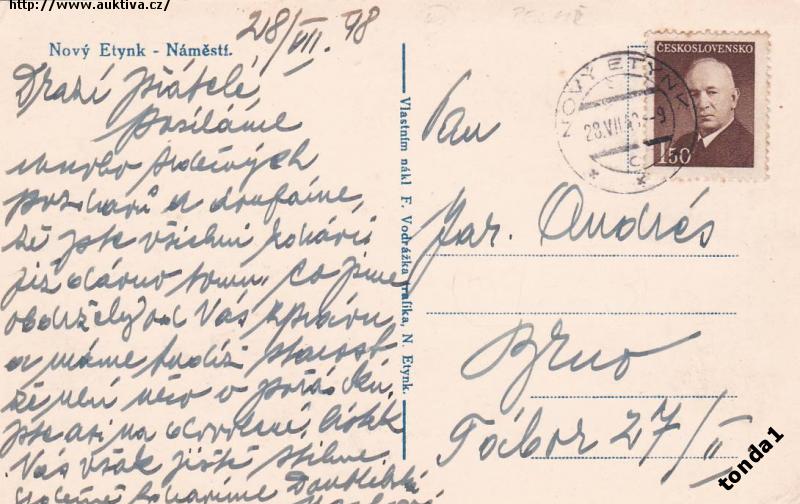 http://www.auktiva.cz/
28/VII. 48
Nový Etynk - Náměstí.
Drazí přátelé,
posíláme
mnoho srdečných
pozdravů a doufáme,
že jste všichni zdrávi
již dávno tomu, co jsme
obdrželi od Vás zprávu
a máme tudíž starost
že není něco v pořádku.
jste asi na dovolené, lístek
Vás však jistě stihne.
Srdečně zdravíme
Vlastním nákl F. Vodrážka trafika, N. Etynk.
ČESKOSLOVENSKO
1·50
NOVÝ ETYNK
28.VII.48-9
Pan
Jar. Andrés
Brno
Tábor 27/II
tonda1